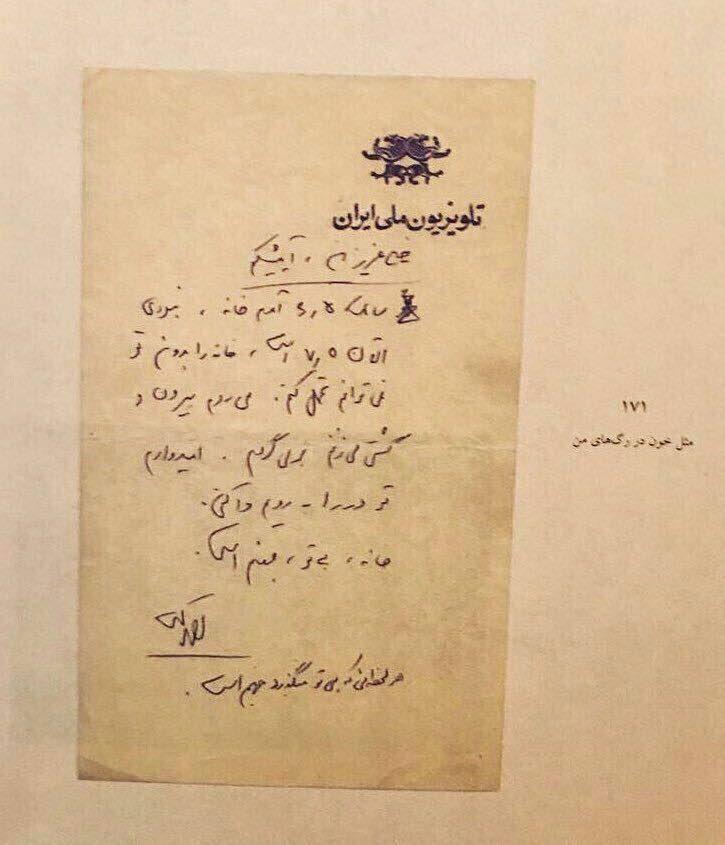 تلویزیون ملی ایران
عزیز من ،
ساعت ۶٫۵ آمدم خانه ، نبودی
الان ۷٫۵ است ، خانه را بدون تو
نمی توانم تحمل کنم . می روم بیرون و
گشتی می زنم برمی گردم . امیدوارم
تو در را به رویم وا کنی .
خانه ، بی تو ، جهنم است .
هر لحظه‌ای که بی تو میگذرد جهنم است .
۱۷۱
مثل خون در رگ‌های من